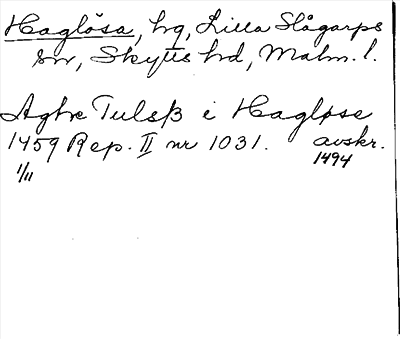 Haglösa, hg, Lilla Slågarps
sn, Skytts hd, Malm. l.
Aghe Tulsß i Hagløse
1459 Rep. II nr 1031. avskr.
1/11 1494